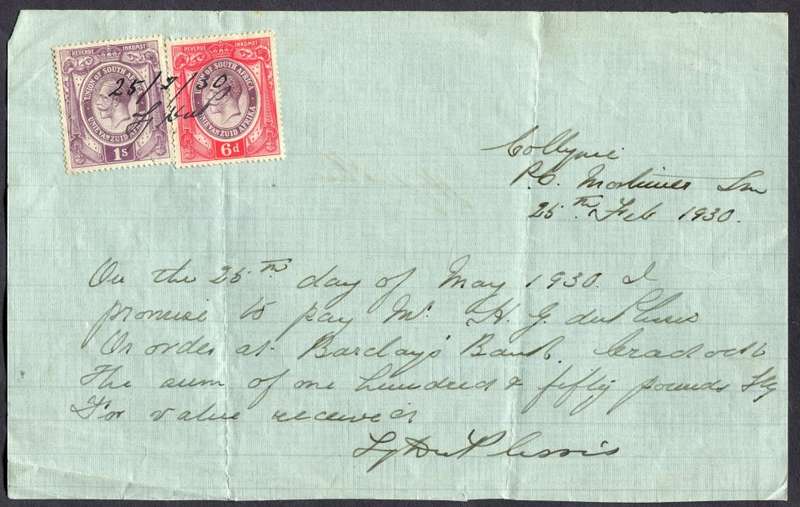 REVENUE INKOMST REVENUE INKOMST
UNION OF SOUTH AFRICA UNION OF SOUTH AFRICA
UNIE VAN ZUID AFRIKA UNIE VAN ZUID AFRIKA
1s 6d
25/2/30
P.O. Mortimer
25th Feb 1930.
On the 25th day of May 1930 I
promise to pay Mr. H. G. du Plessis
Or order at Barclay's Bank, Cradock
The sum of one hundred & fifty pounds Stg
For value received
du Plessis